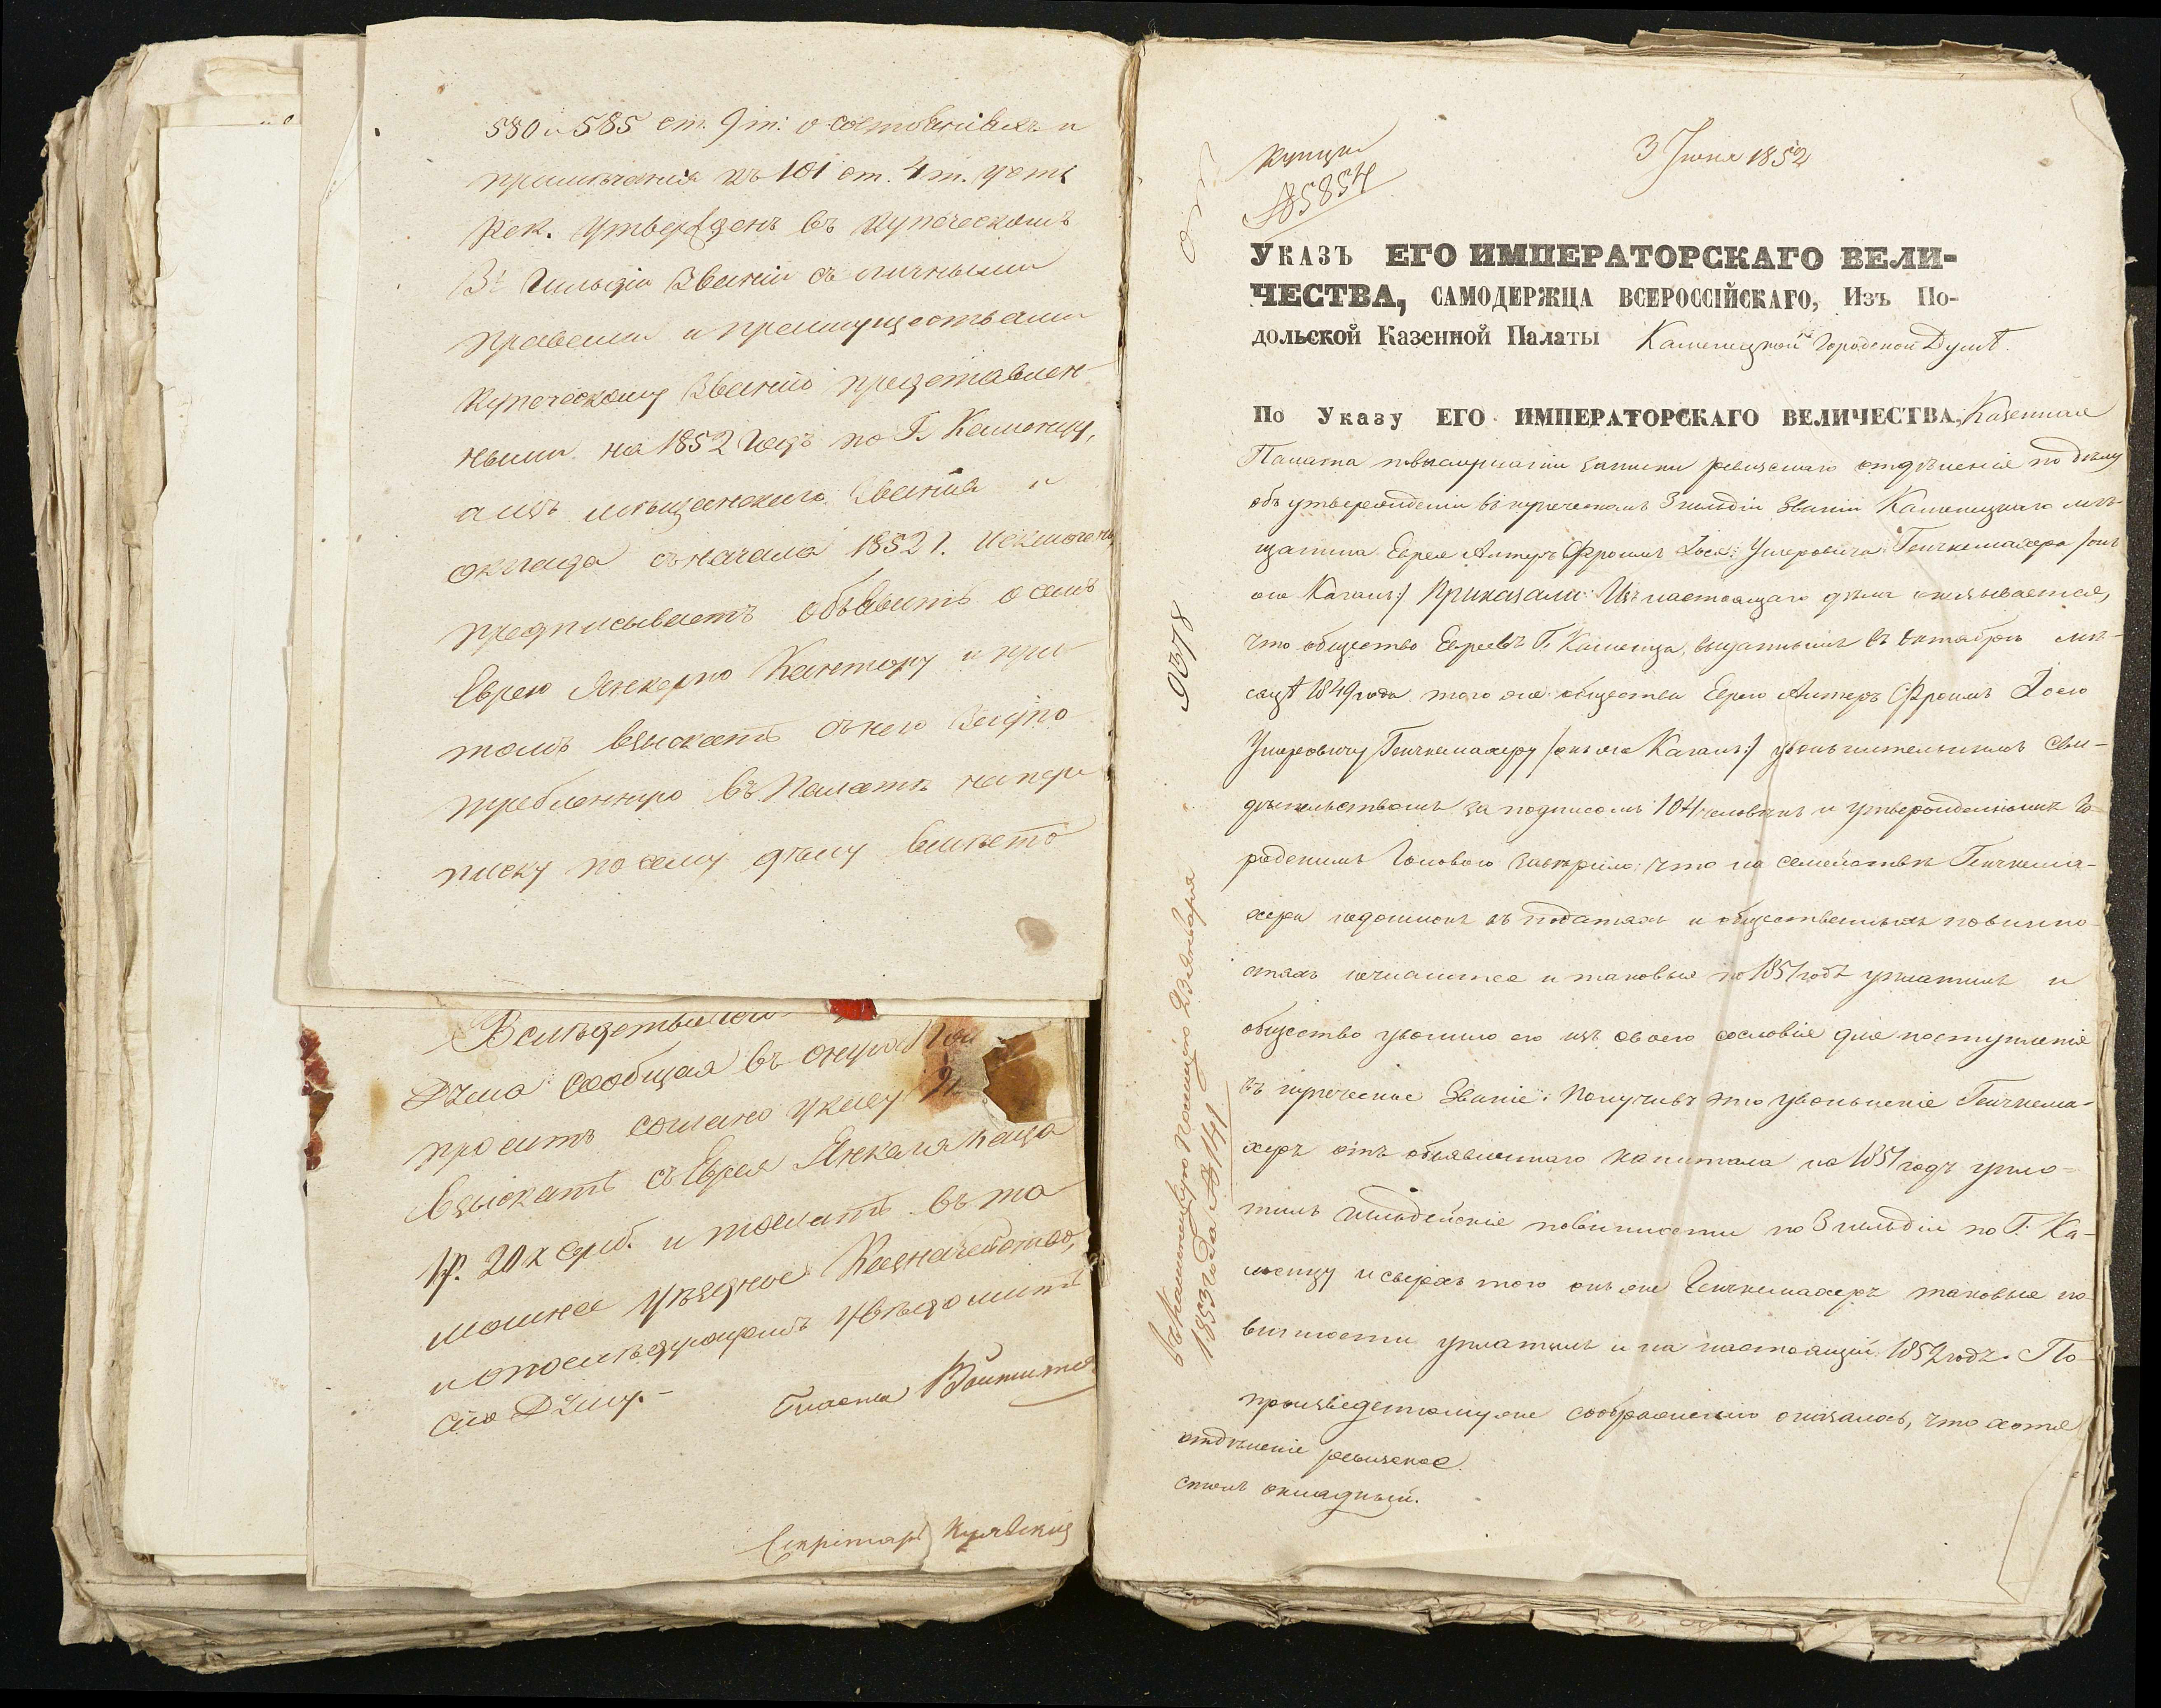 580 и 585 ст. 9 т. о состоянiяхъ и
примечанiя къ 101 ст. 4 т. уст.
Рек. утвержденъ въ купеческомъ
3й Гильдiи Званiи съ личными
правами и преимуществами
Купеческому Званiю предоставлен-
ными на 1852 годъ по Г. Каменцу,
а изъ мещанскаго Званiя и
оклада съ начала 1852 г. исключенъ
предписываетъ объявить о семъ
Еврею Кантору и при
томъ взыскать съ него
требленную въ Палате на пере
писку по сему делу вместо
Вследствiе
Дума сообщая въ оную
проситъ согласно указу
Взыскать съ Еврея Янкеля
1 р. 20 к сереб. и отослать въ та-
мошнее уездное Казначейство,
и о последующемъ уведомить
сiю Думу.
Гласный
Секретарь
Купцы
№ 5854
3 Iюня 1852
УКАЗЪ ЕГО ИМПЕРАТОРСКАГО ВЕЛИ-
ЧЕСТВА, САМОДЕРЖЦА ВСЕРОССIЙСКАГО, Изъ По-
дольской Казенной Палаты Каменецкой Городской Думѣ.
По Указу ЕГО ИМПЕРАТОРСКАГО ВЕЛИЧЕСТВА, Казенная
Палата по выслушанiи записки ревизскаго отдѣленiя по дѣлу
объ утвержденiи въ купеческомъ 3 гильдiи званiи Каменецкаго мѣ-
щанина Еврея Алтеръ Фроимъ Iося Ушеровича Генчкемахера /онъ
же Каганъ:/ Приказали: Изъ настоящаго дѣла оказывается,
что общество Евреевъ Г. Каменца, выданнымъ въ Октябрѣ мѣ-
сяцѣ 1849 года того же общества Еврею Алтеръ Фроимъ Iосю
Ушеровичу Генчкемахеру /онъ же Каганъ:/ увольнительнымъ сви-
дѣтельствомъ за подписомъ 104 человѣкъ и утвержденнымъ Го-
родскимъ Головою завѣрило: что на семействѣ Генчкема-
хера недоимокъ въ податяхъ и общественныхъ повинно-
стяхъ не числится и таковыя по 1851 годъ уплатилъ и
общество уволило его изъ своего сословiя для поступленiя
въ купеческое Званiе. Получивъ это увольненiе Генчкема-
херъ отъ объявленнаго капитала на 1851 годъ упла-
тилъ гильдейскiя повинности по 3 гильдiи по Г. Ка-
менцу и сверхъ того онъ же Генчкемахеръ таковыя по-
винности уплатилъ и на настоящiй 1852 годъ. По
произведенному же соображенiю оказалось, что хотя
отдѣленiе ревизское.
столъ окладный.
9378
въ Каменецкую Полицiю 23 Января
1853 года № 141